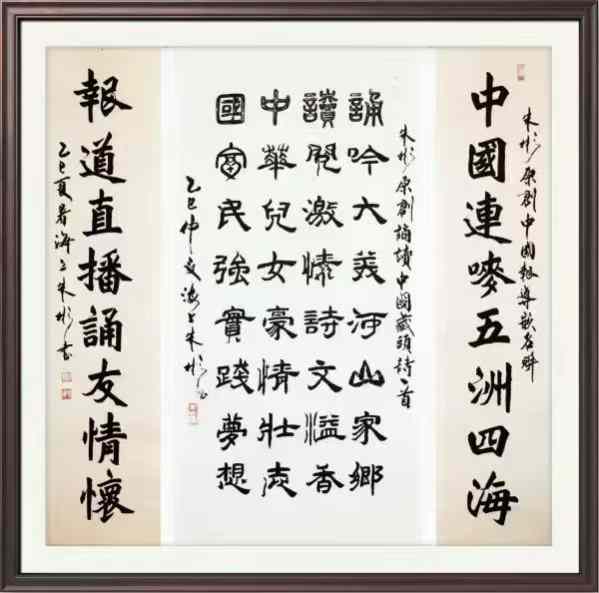 朱彬原創中國報導嵌名聯
中國連嘜五洲四海
朱彬原創誦讀中國藏頭詩一首
誦吟大美河山家鄉
讀閱激情詩文溢香
中華兒女豪情壯志
國富民強實踐夢想
乙巳仲夏海上朱彬書
報道直播誦友情懷
乙巳夏暑海上朱彬書